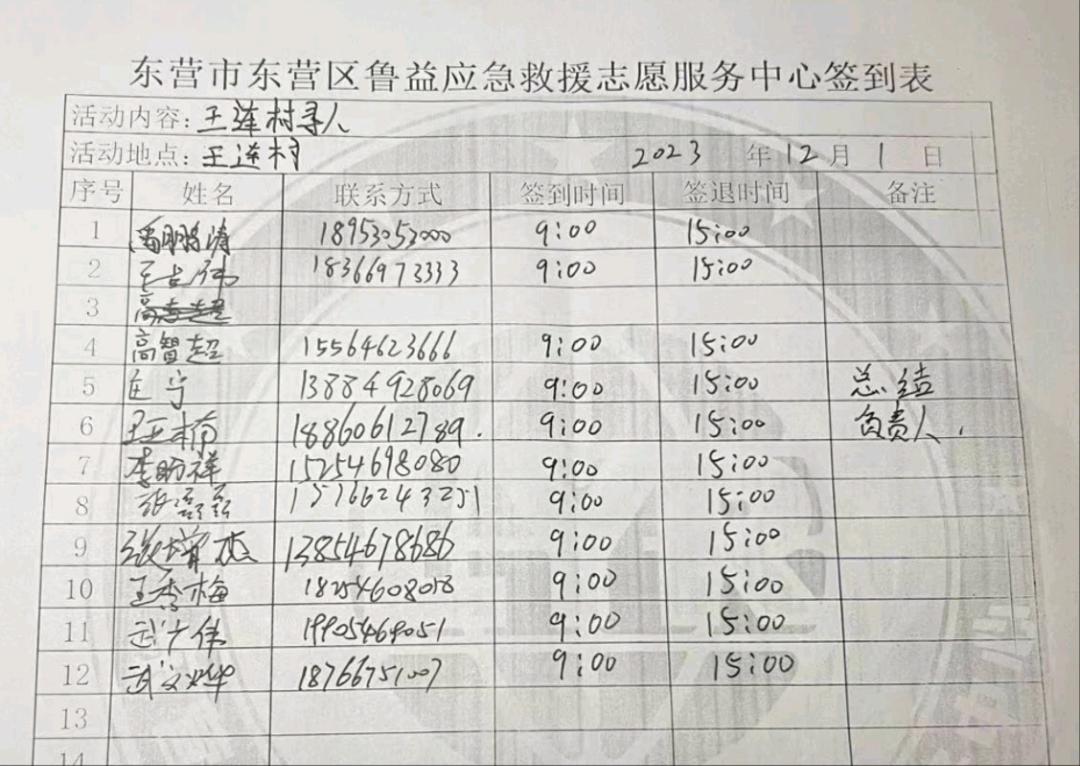 东营市东营区鲁益应急救援志愿服务中心签到表
活动内容: 王连村寻人
活动地点: 王连村 2023 年 12 月 1 日
序号 姓名 联系方式 签到时间 签退时间 备注
1 18953053000 9:00 15:00
2 18366973333 9:00 15:00
3
4 高智超 15564623666 9:00 15:00
5 宁 13884928069 9:00 15:00 总结
6 王亚楠 18860612789. 9:00 15:00 负责人.
7 李明祥 15254698080 9:00 15:00
8 张 15766243251 9:00 15:00
9 张增杰 13854678686 9:00 15:00
10 王秀梅 18254608058 9:00 15:00
11 武广伟 19905469051 9:00 15:00
12 武文烨 18766751007 9:00 15:00
13
14